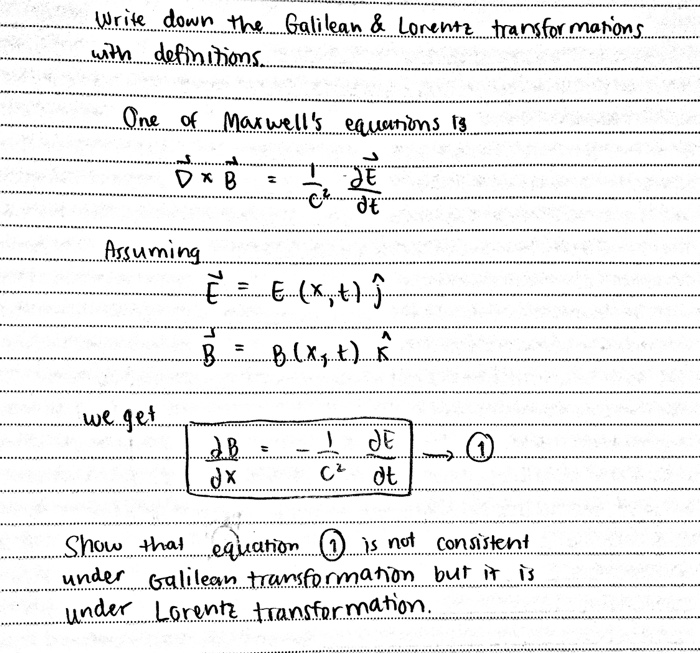 Write down the Galilean & Lorentz transformations
with definitions.
One of Maxwell's equations is
∇⃗ × B⃗ = 1/c² ∂E⃗/∂t
Assuming
E⃗ = E (x, t) ĵ
B⃗ = B (x, t) k̂
we get
∂B/∂x = - 1/c² ∂E/∂t → ①
Show that equation ① is not consistent
under Galilean transformation but it is
under Lorentz transformation.